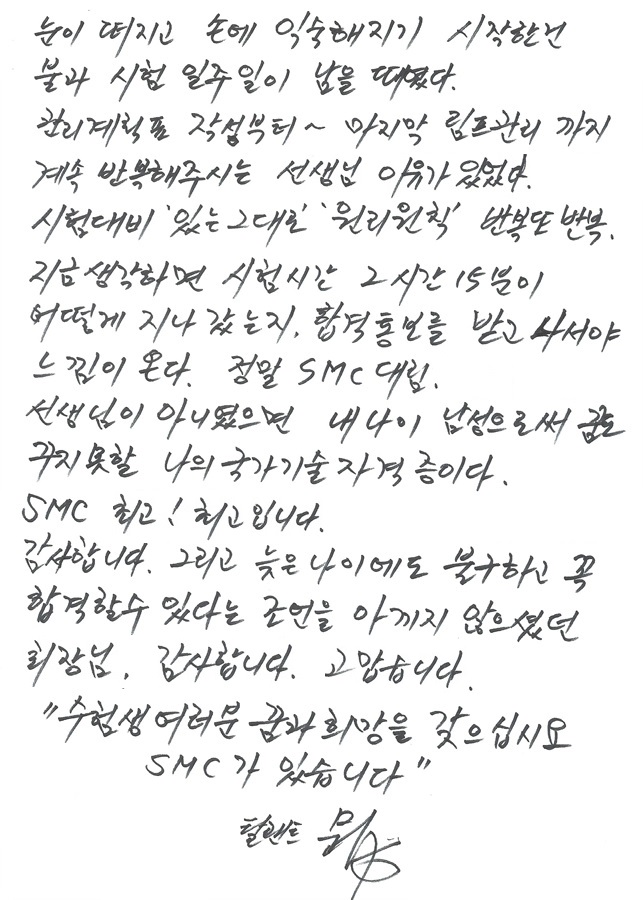 눈이 떠지고 손에 익숙해지기 시작한건
불과 시험 일주일이 남을 때였다.
관리계획표 작성부터~ 마지막 림프관리 까지
계속 반복해주시는 선생님 이유가 있었다.
시험대비 '있는그대로' '원리원칙' 반복또반복.
지금생각하면 시험시간 2시간15분이
어떻게 지나 갔는지, 합격통보를 받고 나서야
느낌이 온다. 정말 SMC 대림.
선생님이 아니였으면 내나이 남성으로써 꿈도
꾸지못할 나의국가기술자격증이다.
SMC 최고! 최고입니다.
감사합니다. 그리고 늦은나이에도 불구하고 꼭
합격할수 있다는 조언을 아끼지 않으셨던
회장님, 감사합니다. 고맙습니다.
"수험생여러분 꿈과희망을 갖으십시요
SMC가 있습니다"
탈랜트